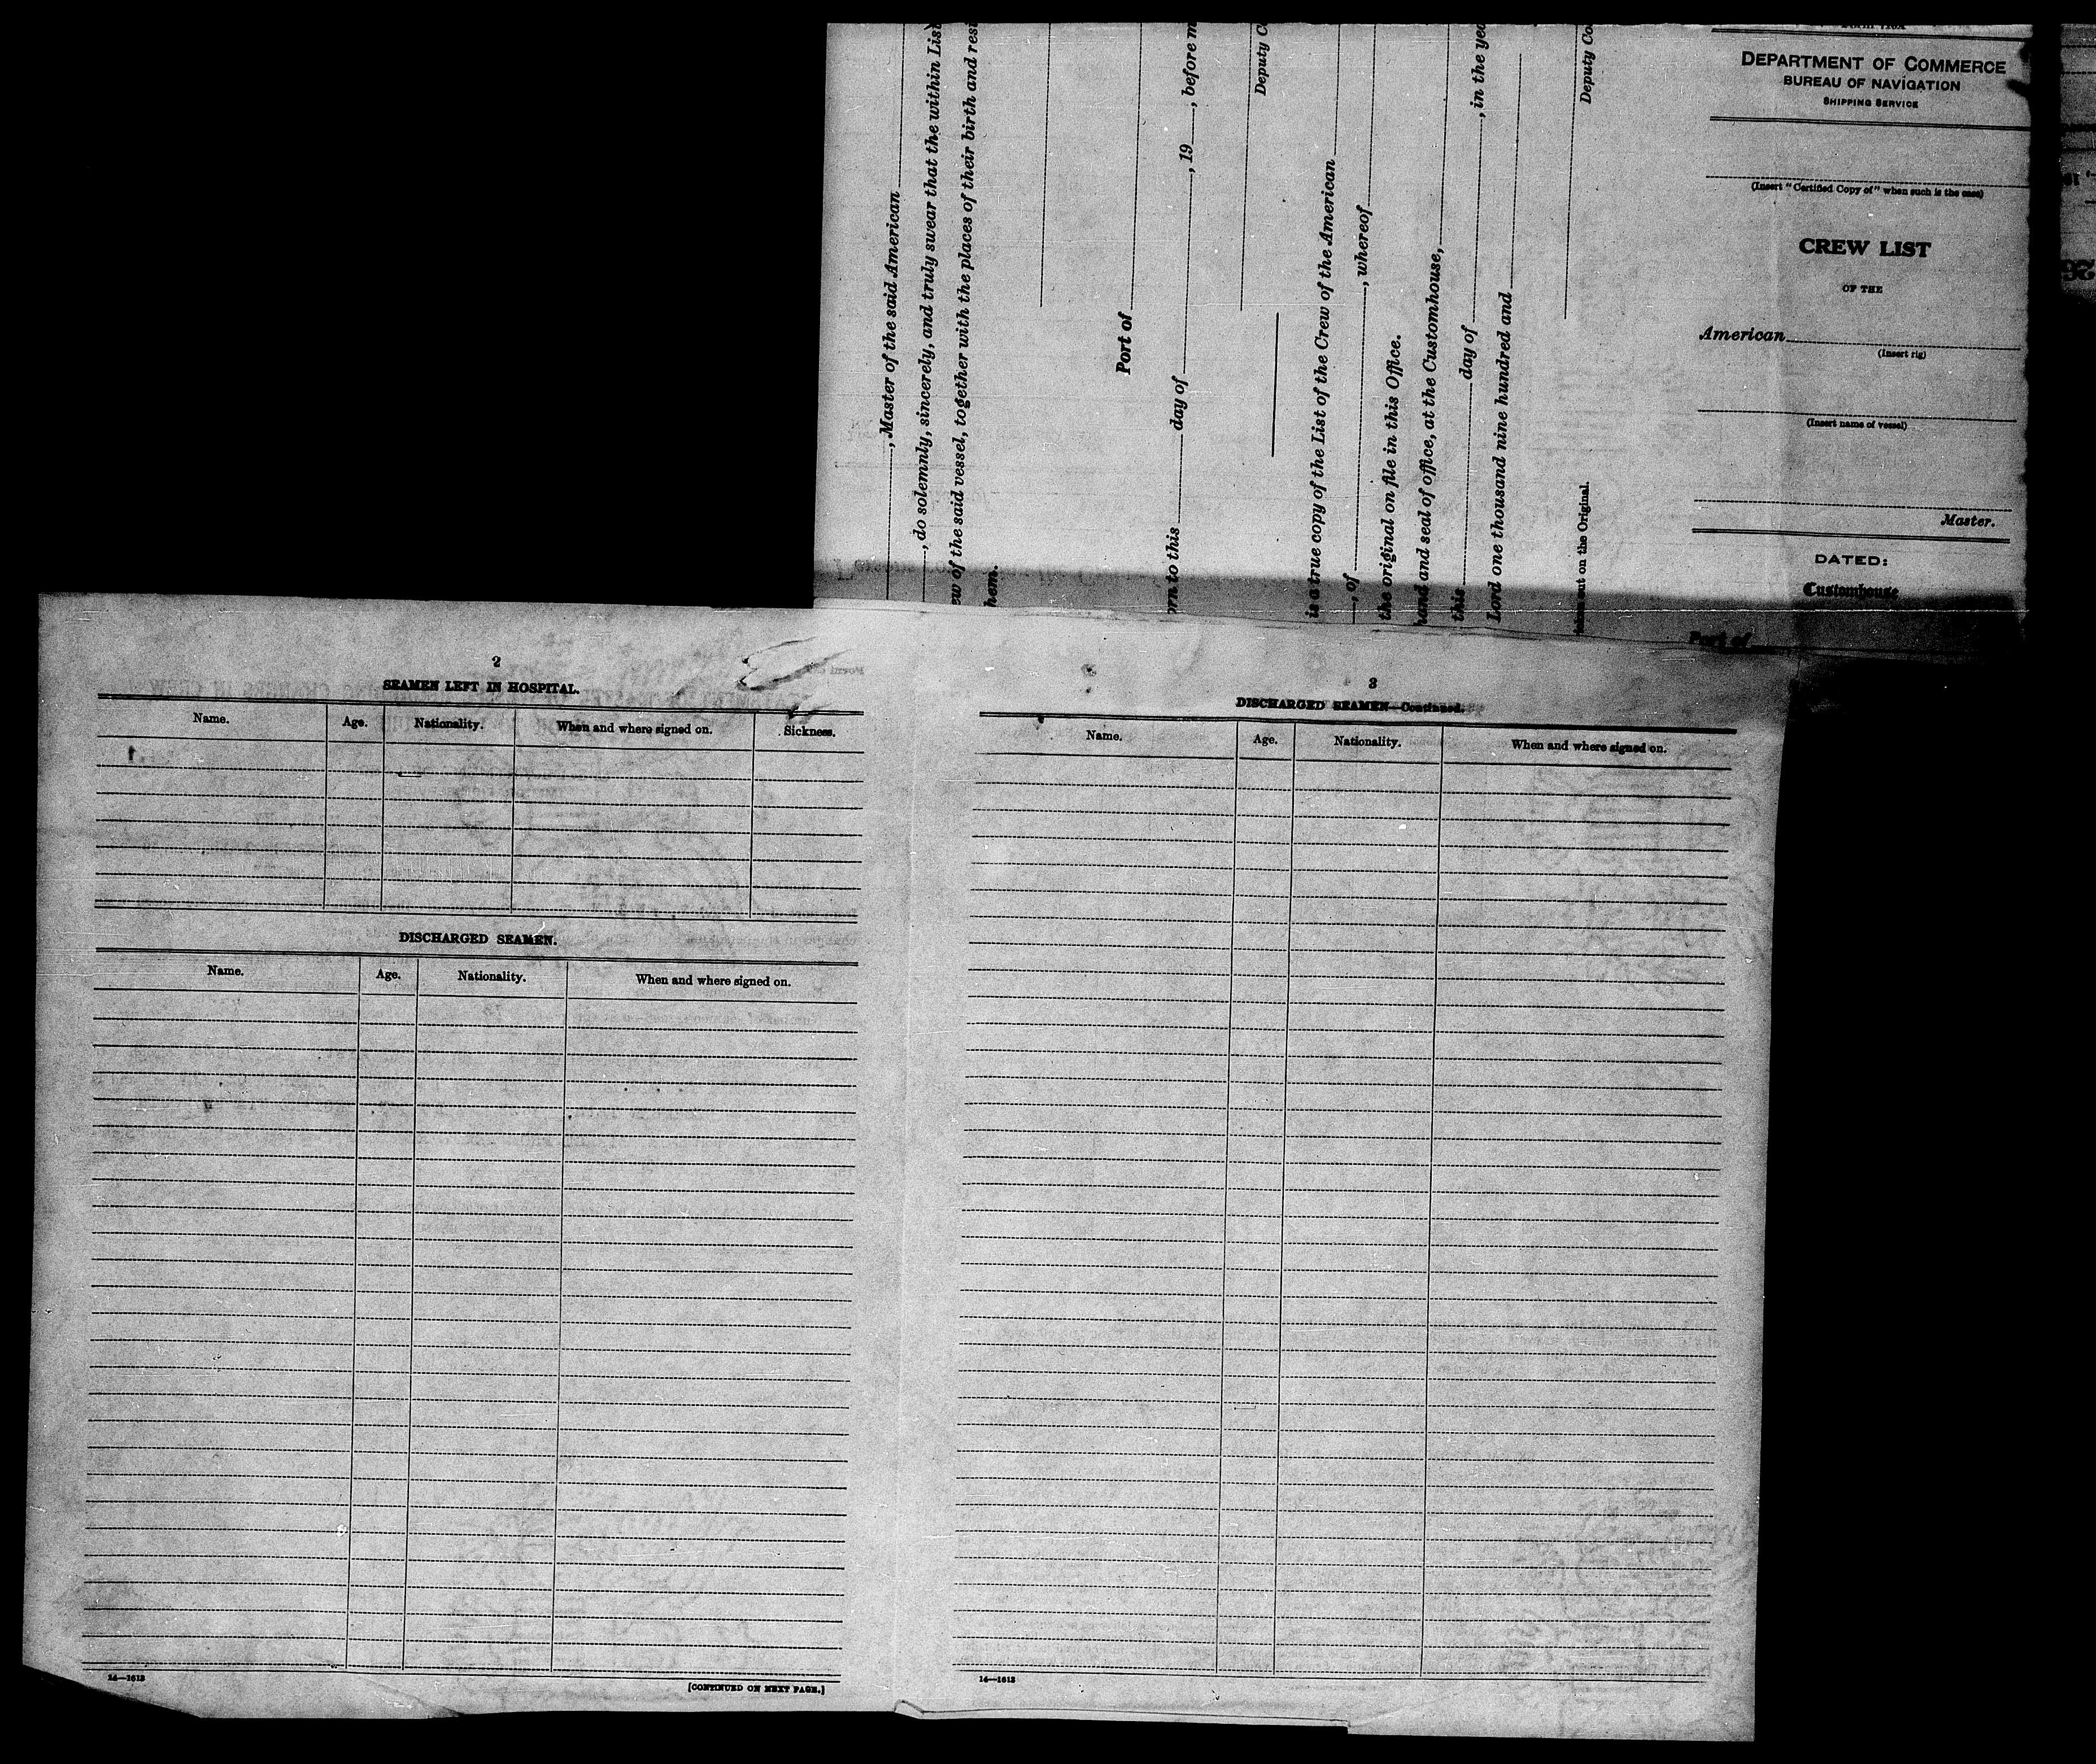 , Master of the said American
, do solemnly, sincerely, and truly swear that the within List
ew of the said vessel, together with the places of their birth and resi
hem.
Port of
orn to this day of , 19 , before m
Deputy C
is a true copy of the List of the Crew of the American
, of , whereof
the original on file in this Office.
hand and seal of office, at the Customhouse,
this day of , in the yea
Lord one thousand nine hundred and
Deputy Co
taken out on the Original.
DEPARTMENT OF COMMERCE
BUREAU OF NAVIGATION
SHIPPING SERVICE
(Insert "Certified Copy of" when such is the case)
CREW LIST
OF THE
American
(Insert rig)
(Insert name of vessel)
Master.
DATED:
Customhouse
Port of
2
SEAMEN LEFT IN HOSPITAL.
Name. Age. Nationality. When and where signed on. Sickness.
DISCHARGED SEAMEN.
Name. Age. Nationality. When and where signed on.
14—1613
[CONTINUED ON NEXT PAGE.]
3
DISCHARGED SEAMEN—Continued.
Name. Age. Nationality. When and where signed on.
14—1613